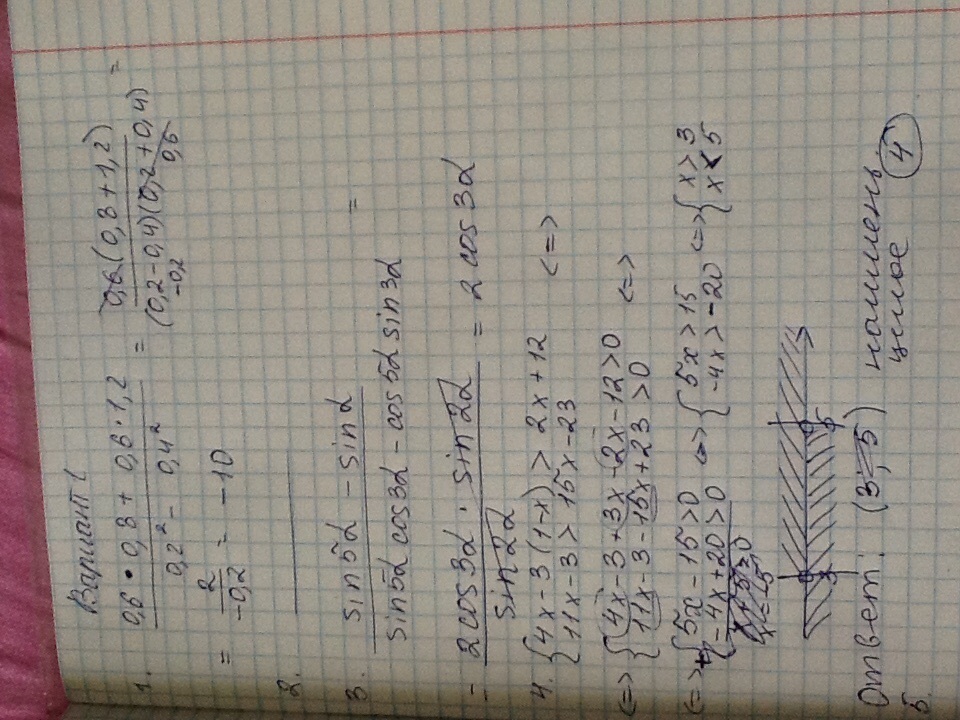 Вариант 1
1. (0,6 • 0,8 + 0,6 · 1,2) / (0,2² - 0,4²) = 0,6(0,8 + 1,2) / ((0,2 - 0,4)(0,2 + 0,4)) =
-0,2 0,6
= 2 / -0,2 = -10
2.
3. (sin5α - sinα) / (sin5α cos3α - cos5α sin3α) =
= (2cos3α · sin2α) / sin2α = 2 cos3α
4. { 4x - 3(1-x) > 2x + 12
11x - 3 > 15x - 23 <=>
<=> { 4x - 3 + 3x - 2x - 12 > 0
11x - 3 - 15x + 23 > 0 <=>
<=> { 5x - 15 > 0
-4x + 20 > 0 <=> { 5x > 15
-4x > -20 <=> { x > 3
x < 5
3 5
Ответ: (3; 5) наименьш целое 4
5.